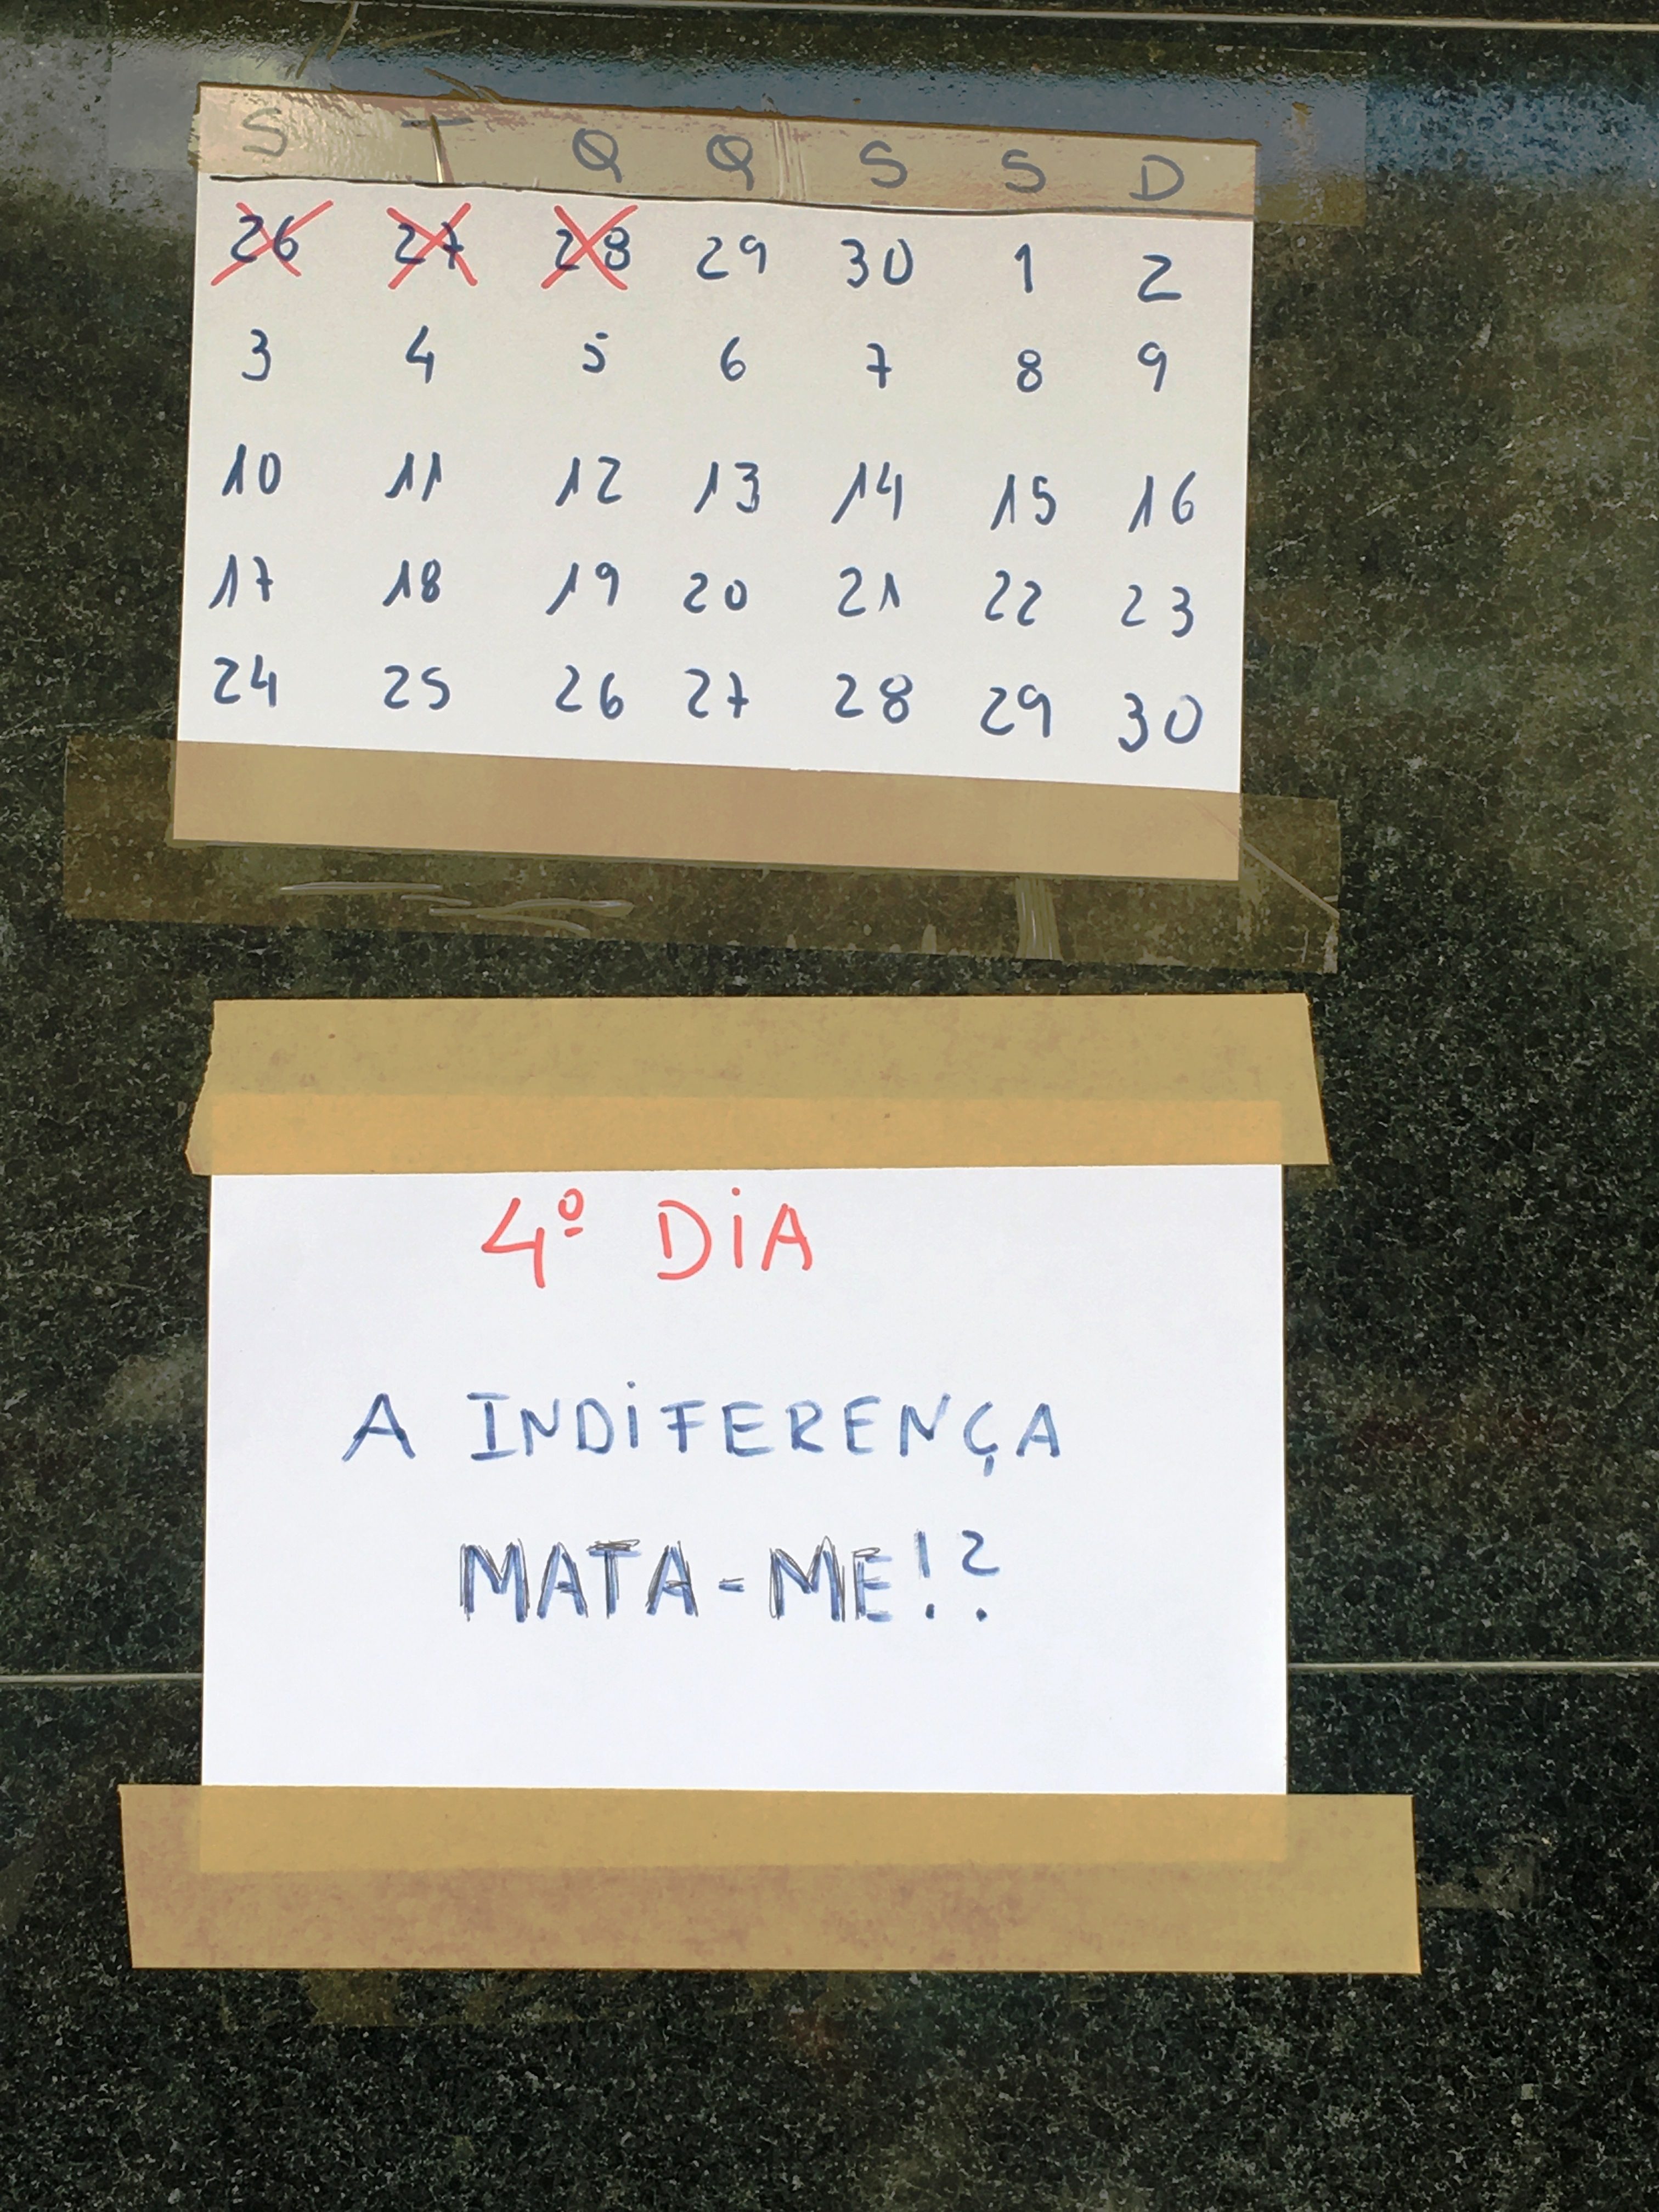 S T Q Q S S D
26 27 28 29 30 1 2
3 4 5 6 7 8 9
10 11 12 13 14 15 16
17 18 19 20 21 22 23
24 25 26 27 28 29 30
4º DIA
A INDIFERENÇA
MATA-ME!?